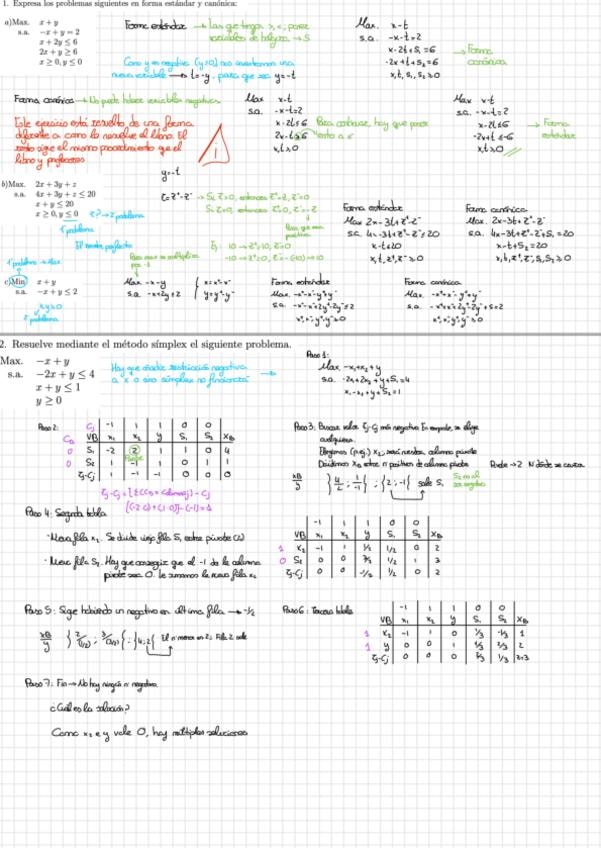 1. Expresa los problemas siguientes en forma estándar y canónica:
a)Max. x + y
s.a. −x + y = 2
x + 2y ≤ 6
2x + y ≥ 6
x ≥ 0, y ≤ 0
Forma estándar → Las que tengan >, <, poner variables de holgura → S
Como y es negativa (y≤0) nos inventamos una nueva variable → t=-y, para que sea y=-t
Max. x-t
s.a. -x-t=2
x-2t+S₁=6
-2x+t+S₂=6
x,t,S₁,S₂≥0
→ Forma canónica
Forma canónica → No puede haber variables negativas
Este ejercicio está resuelto de una forma diferente a como lo resuelve el libro. El resto sigue el mismo procedimiento que el libro y profesores
Max x-t
s.a. -x-t=2
x-2t≤6
2x-t≥6
x,t≥0
Para continuar, hay que poner esto a ≤
Max x-t
s.a. -x-t=2
x-2t≤6
-2x+t≤-6
x,t≥0
→ Forma estándar
b)Max. 2x + 3y + z
s.a. 4x + 3y + z ≤ 20
x + y ≤ 20
x ≥ 0, y ≤ 0
z? → 2º problema
1º problema
y=-t
z=z⁺-z⁻ → Si z>0, entonces z⁺=z, z⁻=0
Si z<0, entonces z⁺=0, z⁻=-z
Para que sea positiva
Ej: 10 → z⁺=10, z⁻=0
-10 → z⁺=0, z⁻=-(-10)=10
Forma estándar
Max 2x-3t+z⁺-z⁻
s.a. 4x-3t+z⁺-z⁻≤20
x-t≤20
x,t,z⁺,z⁻≥0
Forma canónica
Max. 2x-3t+z⁺-z⁻
s.a. 4x-3t+z⁺-z⁻+S₁=20
x-t+S₂=20
x,t,z⁺,z⁻,S₁,S₂≥0
1º problema → Max
c)Min x + y
s.a. −x + y ≤ 2
2º problema
Para max se multiplica por -1
Max -x-y
s.a. -x+y≤2
x=x⁺-x⁻
y=y⁺-y⁻
Forma estándar
Max. -x⁺+x⁻-y⁺+y⁻
s.a. -x⁺+x⁻+y⁺-y⁻≤2
x⁺,x⁻,y⁺,y⁻≥0
Forma canónica
Max. -x⁺+x⁻-y⁺+y⁻
s.a. -x⁺+x⁻+y⁺-y⁻+S=2
x⁺,x⁻,y⁺,y⁻≥0
2. Resuelve mediante el método símplex el siguiente problema.
Max. −x + y
s.a. −2x + y ≤ 4
x + y ≤ 1
y ≥ 0
Hay que añadir restricción negativa a x o sino símplex no funcionará
Paso 1:
Max -x₁+x₂+y
s.a. -2x₁+2x₂+y+S₁=4
x₁-x₂+y+S₂=1
Paso 2:
Cj -1 1 1 0 0
VB x₁ x₂ y S₁ S₂ XB
0 S₁ -2 2 1 1 0 4
0 S₂ 1 -1 1 0 1 1
Zj-Cj 1 -1 -1 0 0 0
Pivote
Zj-Cj=[Σ(CB × Columnaj)]-Cj
[(-2·0)+(1·0)]-(-1)=1
Paso 3: Buscar valor Zj-Cj más negativo. En empate, se elige cualquiera.
Elegimos (p.ej.) x₂, será nuestra columna pivote
Dividimos XB entre nº positivos de columna pivote
Pivote → 2
Paso 4: Segunda tabla
- Nueva fila x₂. Se divide vieja fila S₁ entre pivote (2)
- Nueva fila S₂. Hay que conseguir que el -1 de la columna pivote sea 0. Le sumamos la nueva fila x₂
-1 1 1 0 0
VB x₁ x₂ y S₁ S₂ XB
1 x₂ -1 1 1/2 1/2 0 2
0 S₂ 0 0 3/2 1/2 1 3
Zj-Cj 0 0 -1/2 1/2 0 2
Paso 5: Sigue habiendo un negativo en última fila → -1/2
XB/y } 2/(1/2) ; 3/(3/2) { = {4; 2} El nº menor es 2; Fila 2 sale
Paso 6: Tercera tabla
-1 1 1 0 0
VB x₁ x₂ y S₁ S₂ XB
1 x₂ -1 1 0 1/3 -1/3 1
1 y 0 0 1 1/3 2/3 2
Zj-Cj 0 0 0 2/3 1/3 z=3
Paso 7: Fin → No hay ningún nº negativo
¿Cuál es la solución?
Como x₂ e y vale 0, hay múltiples soluciones